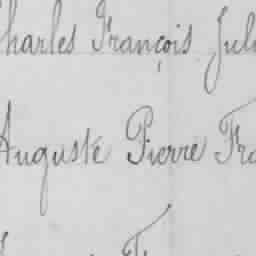 Charles François Jul
Auguste Pierre Fra